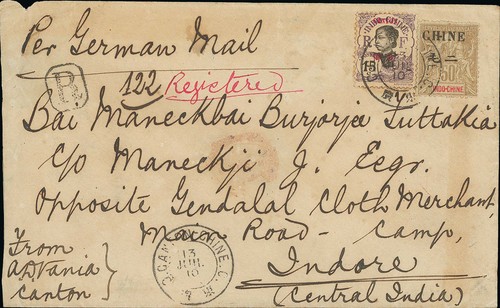 Per German Mail
INDO-CHINE
R F
CHINE
50
INDO-CHINE
R
122 Registered
Bai Maneckbai Burjorja Tuttakia
C/o Maneckji J. Ecgr.
Opposite Gendalal Cloth Merchant
Main Road - Camp,
Indore
(Central India)
CANTON CHINE
13
JUIL
10
From
Canton